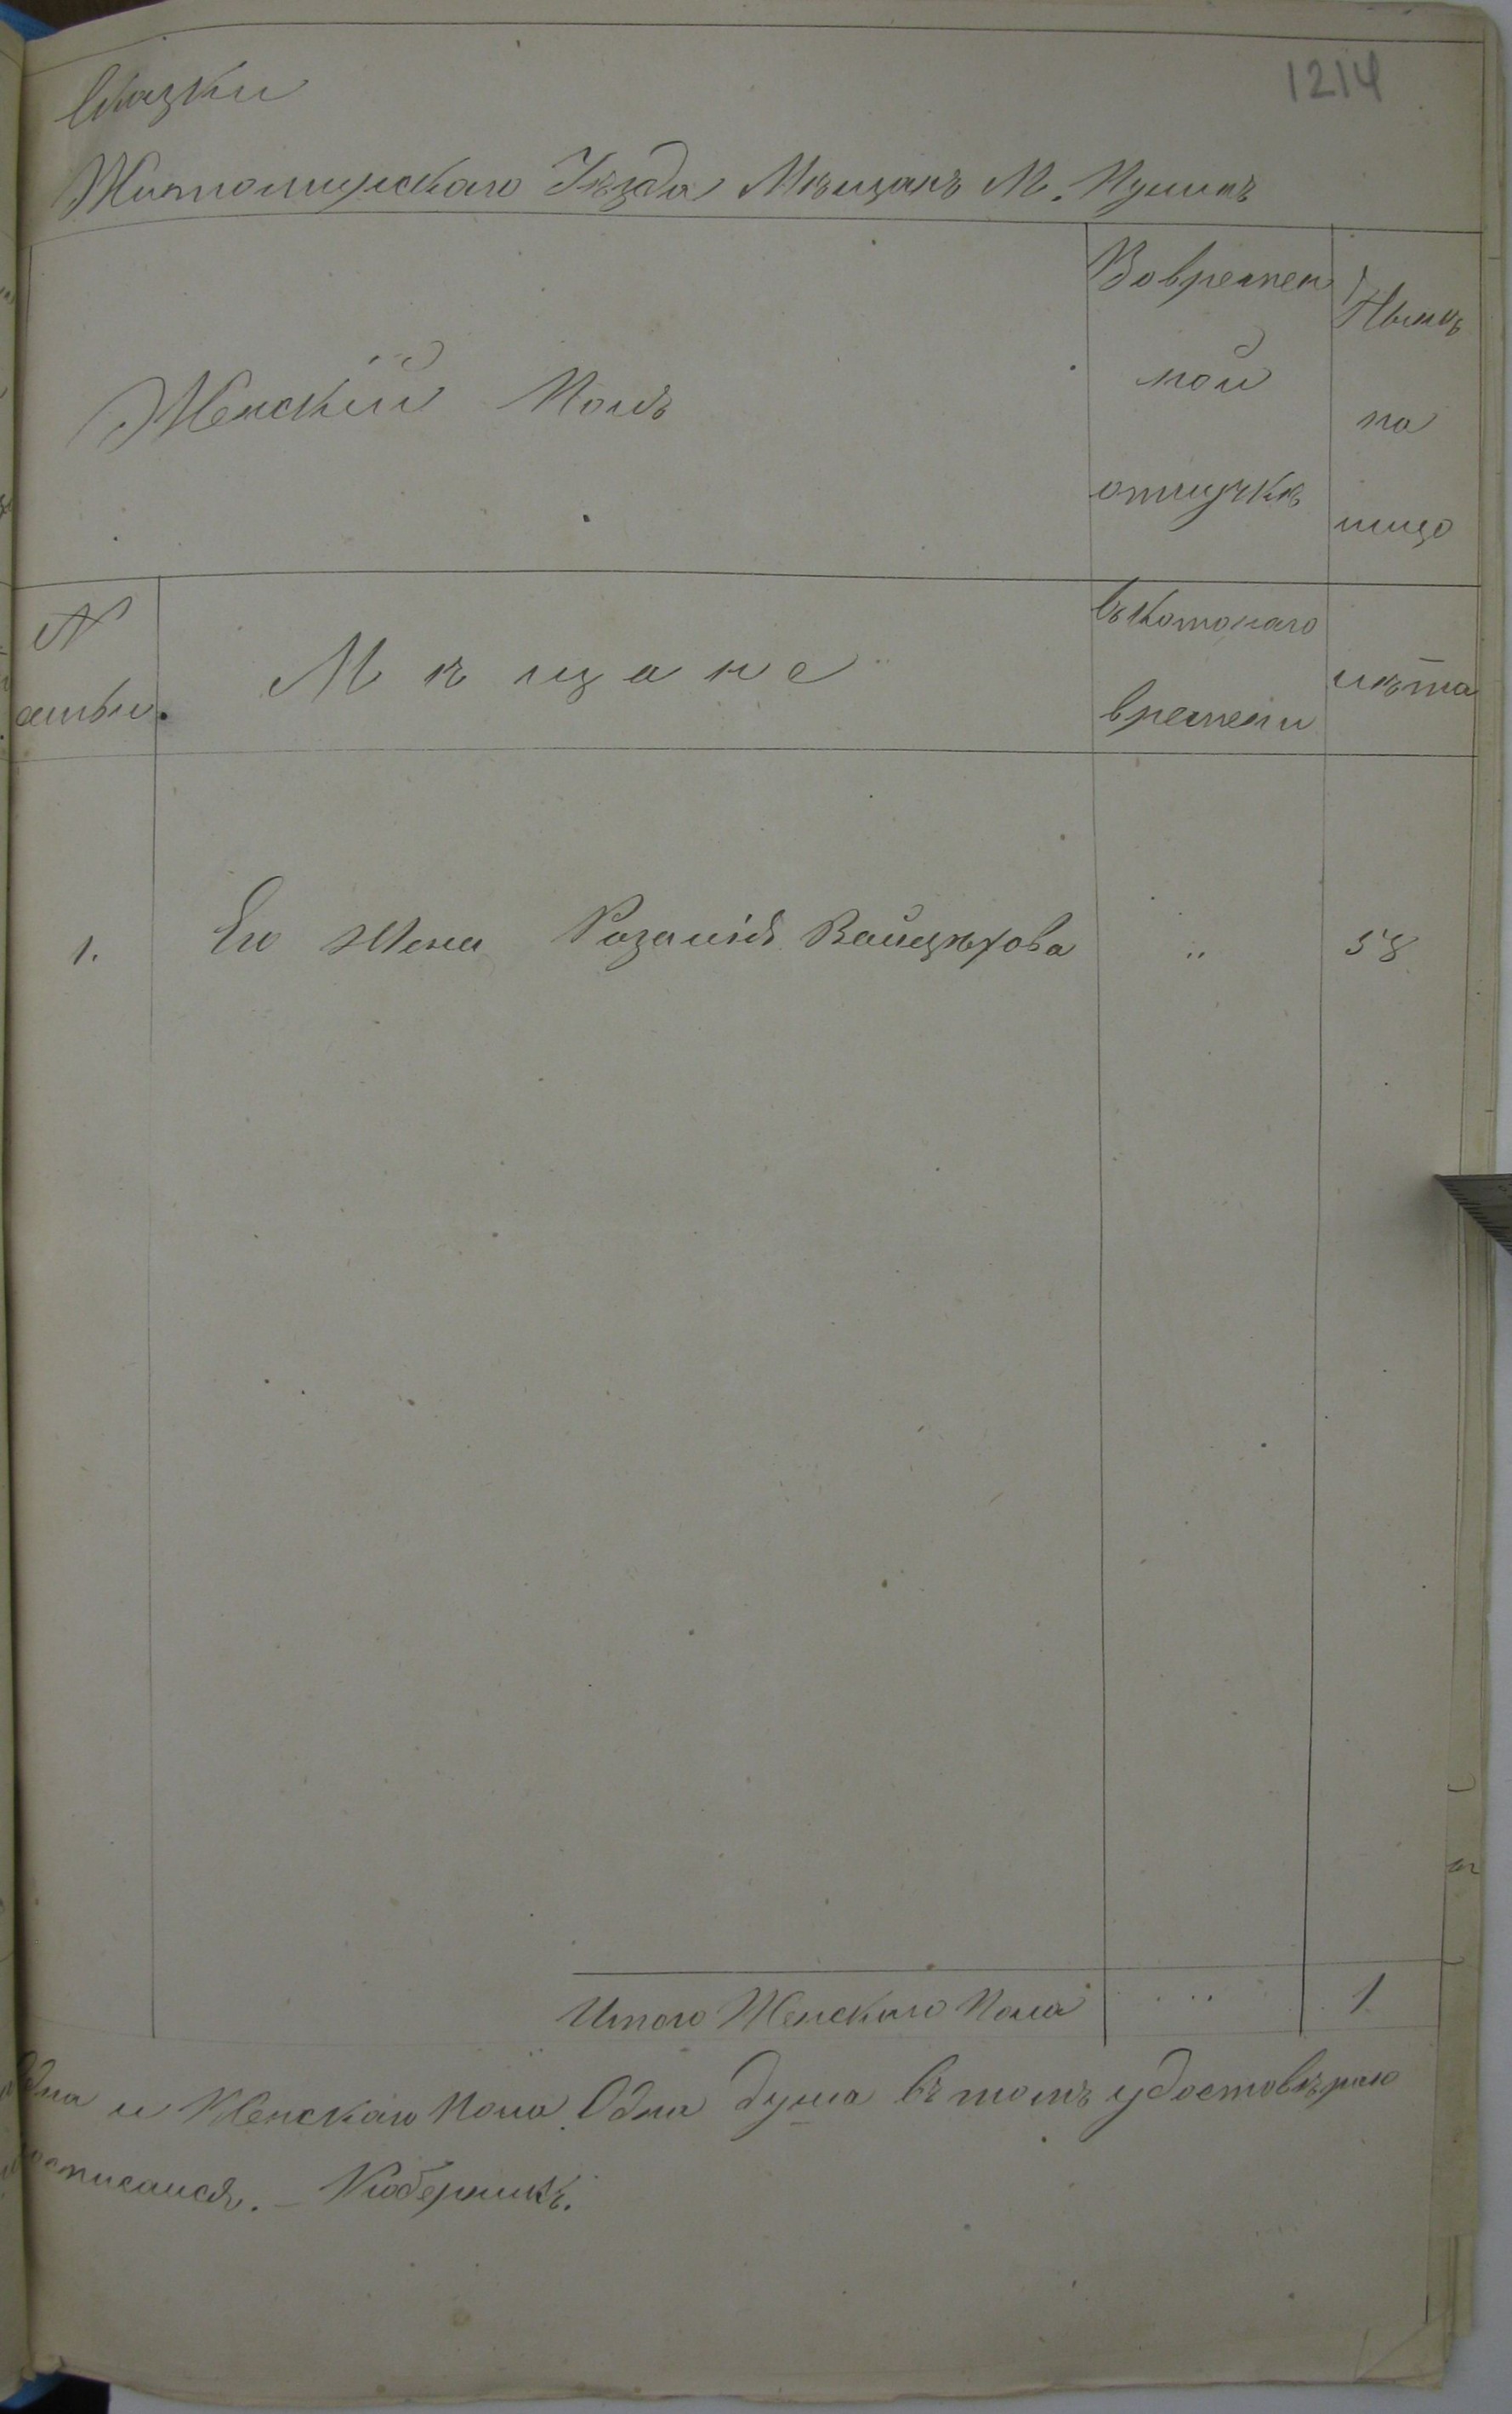 1214
Сказки
Житомирскаго Уѣзда Мѣщанъ М. Пулинъ
Женскій Полъ
Во времен
ной
отлучкѣ
Нынѣ
на
лицо
№
семьи.
Мѣщане
Съ котораго
времени
лѣта
1. Его жена Розалія Войцѣхова " 58
Итого Женскаго Пола " 1
одна и Женскаго Пола Одна душа въ томъ удостовѣряю
росписался. –